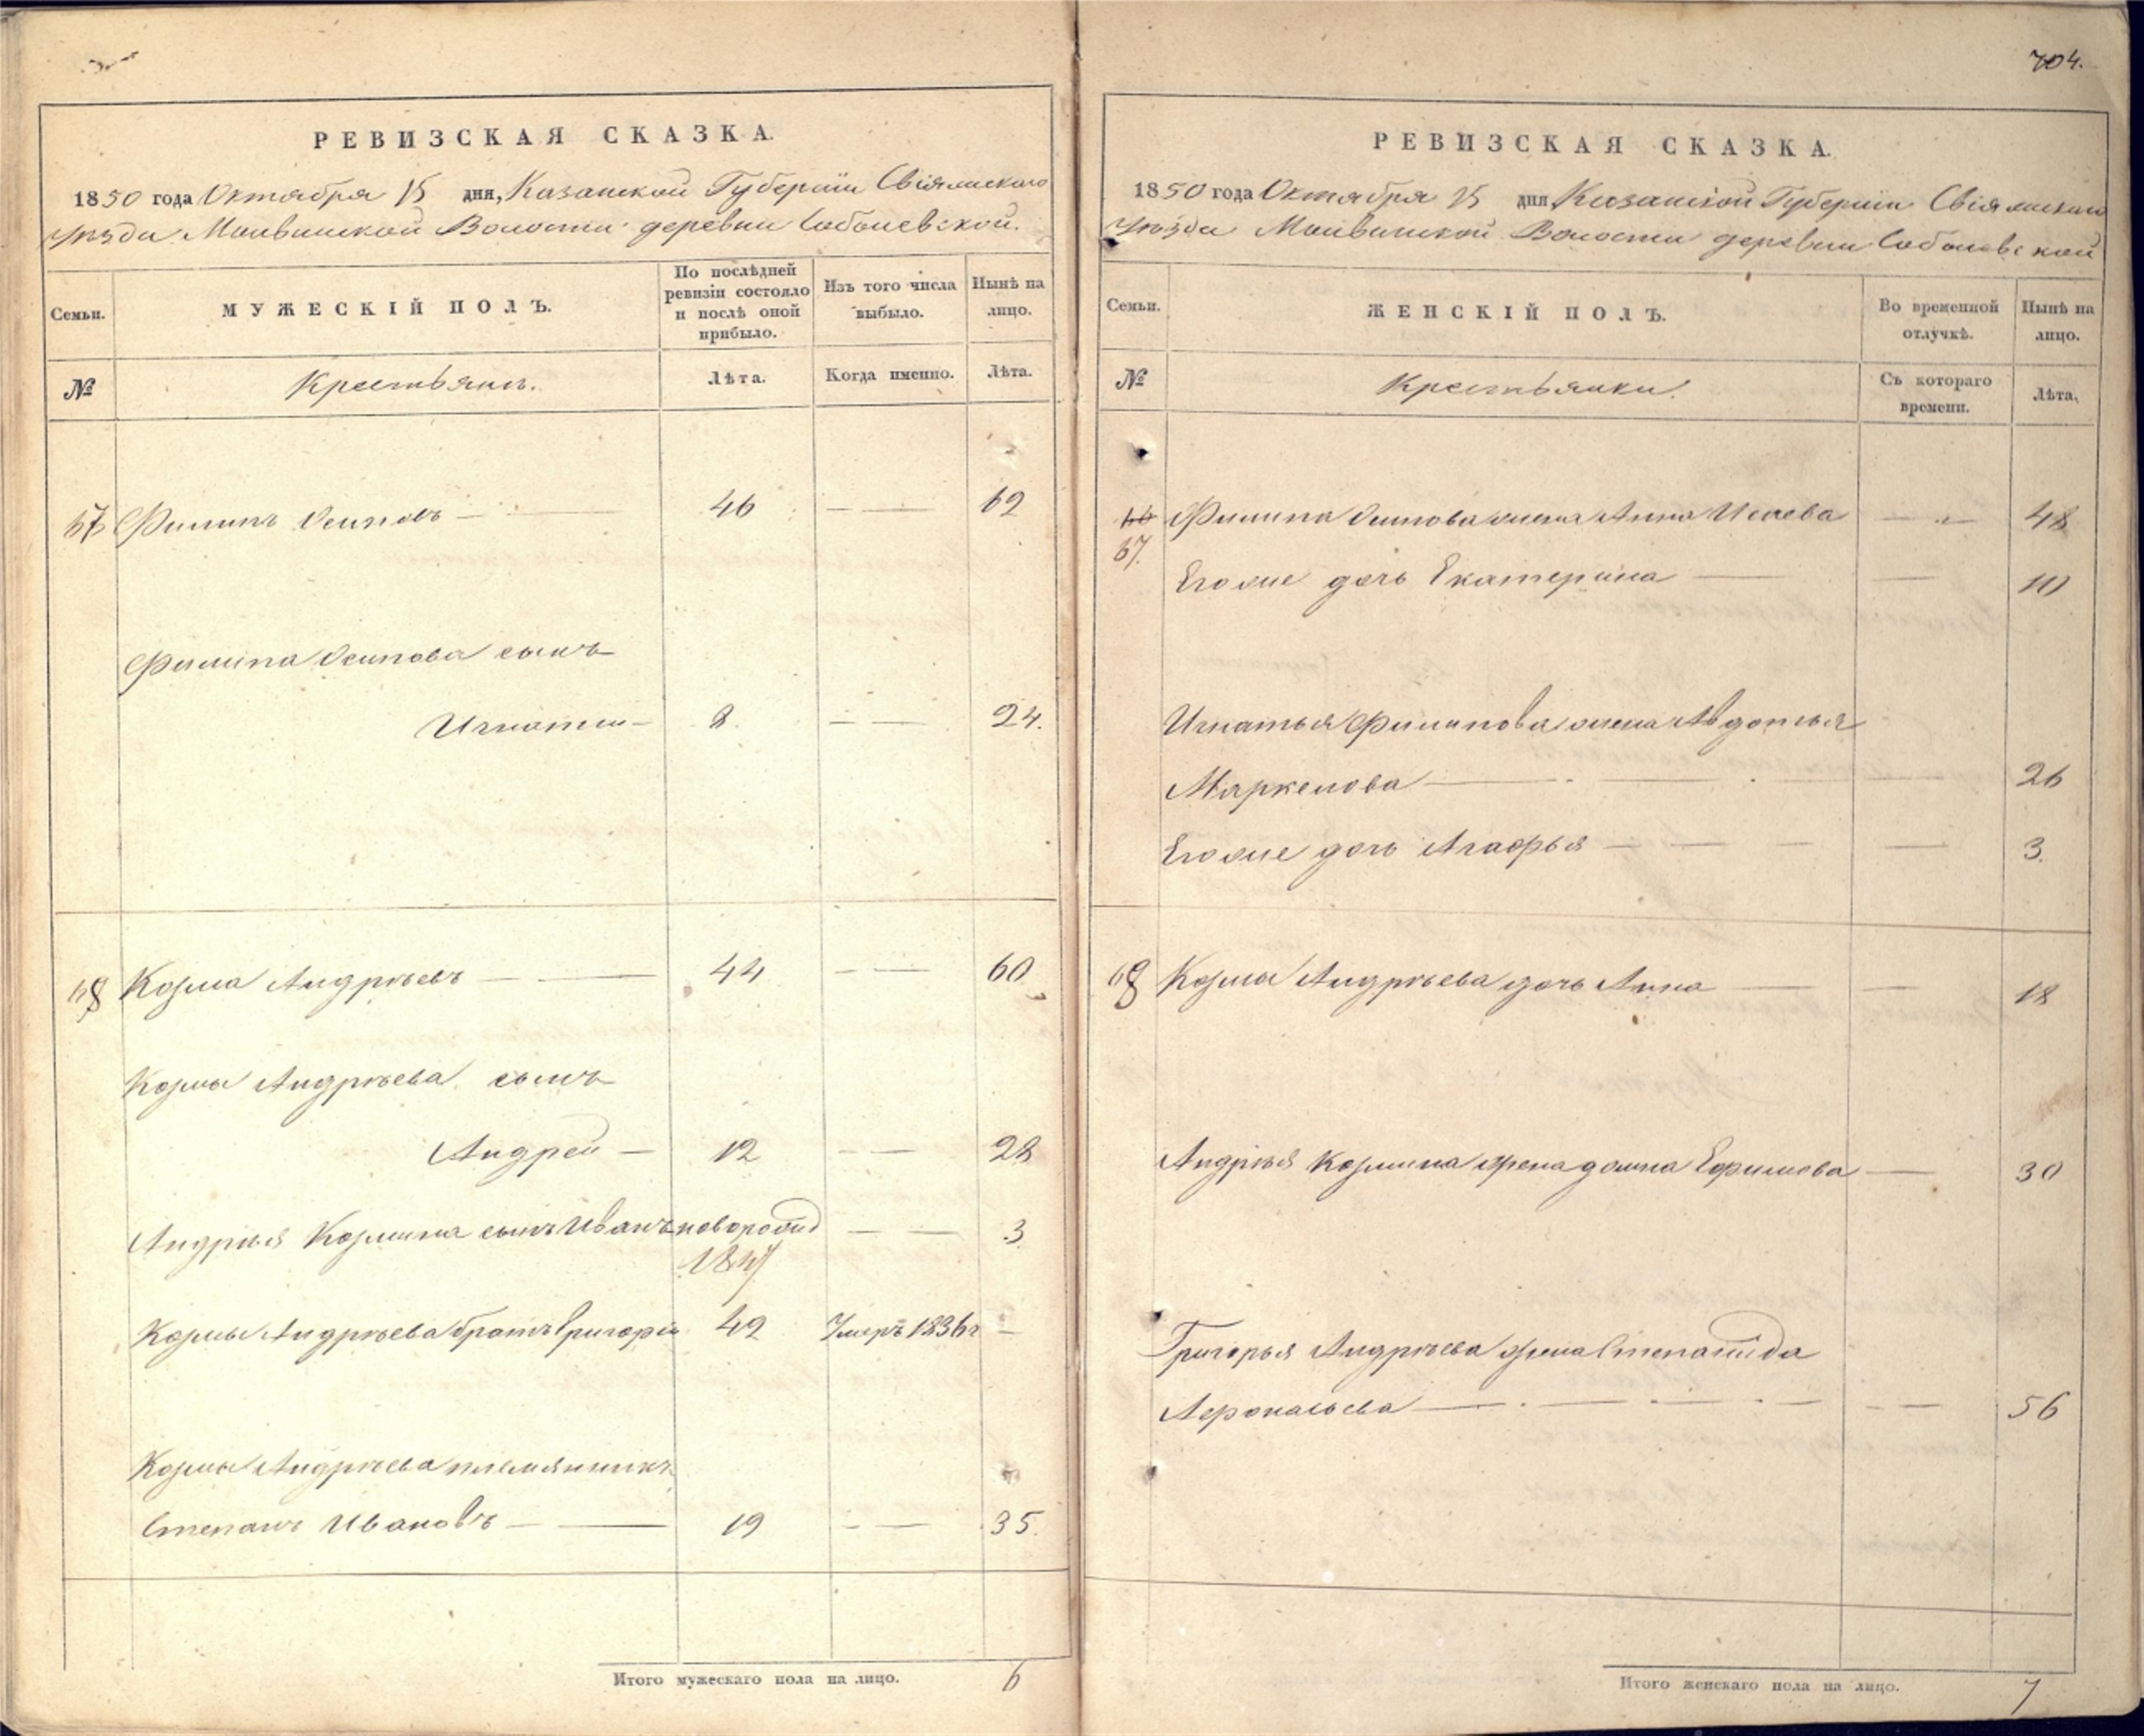 704.
РЕВИЗСКАЯ СКАЗКА.
1850 года Октября 15 дня, Казанской Губерніи Свіяжскаго
уѣзда Молвинской Волости деревни Соболевской.
Семьи.
МУЖЕСКІЙ ПОЛЪ.
По послѣдней ревизіи состояло и послѣ оной прибыло.
Изъ того числа выбыло.
Нынѣ на лицо.
№
Крестьянъ.
Лѣта.
Когда именно.
Лѣта.
67 Филипъ Осиповъ 46 62
Филипа Осипова сынъ
Игнатій 8. 24.
68 Козма Андрѣевъ 44 60
Козмы Андрѣева сынъ
Андрей 12 28
Андрѣя Козмина сынъ Иванъ новорожд 3
1847
Козмы Андрѣева братъ Григорій 42 Умеръ 1836 г
Козмы Андрѣева племянникъ
Степанъ Ивановъ 19 35.
Итого мужескаго пола на лицо. 6
РЕВИЗСКАЯ СКАЗКА.
1850 года Октября 15 дня Казанской Губерніи Свіяжскаго
Уѣзда Молвинской Волости деревни Соболевской
Семьи.
ЖЕНСКІЙ ПОЛЪ.
Во временной отлучкѣ.
Нынѣ на лицо.
№
Крестьянки.
Съ котораго времени.
Лѣта.
66 Филипа Осипова жена Анна Исаева 48
67.
Егоже дочь Екатерина 10
Игнатья Филипова жена Авдотья
Маркелова 26
Егоже дочь Агафья 3.
68 Козмы Андрѣева дочь Анна 18
Андрѣя Козмина жена Домна Ефимова 30
Григорья Андрѣева жена Степанида
56
Итого женскаго пола на лицо. 7